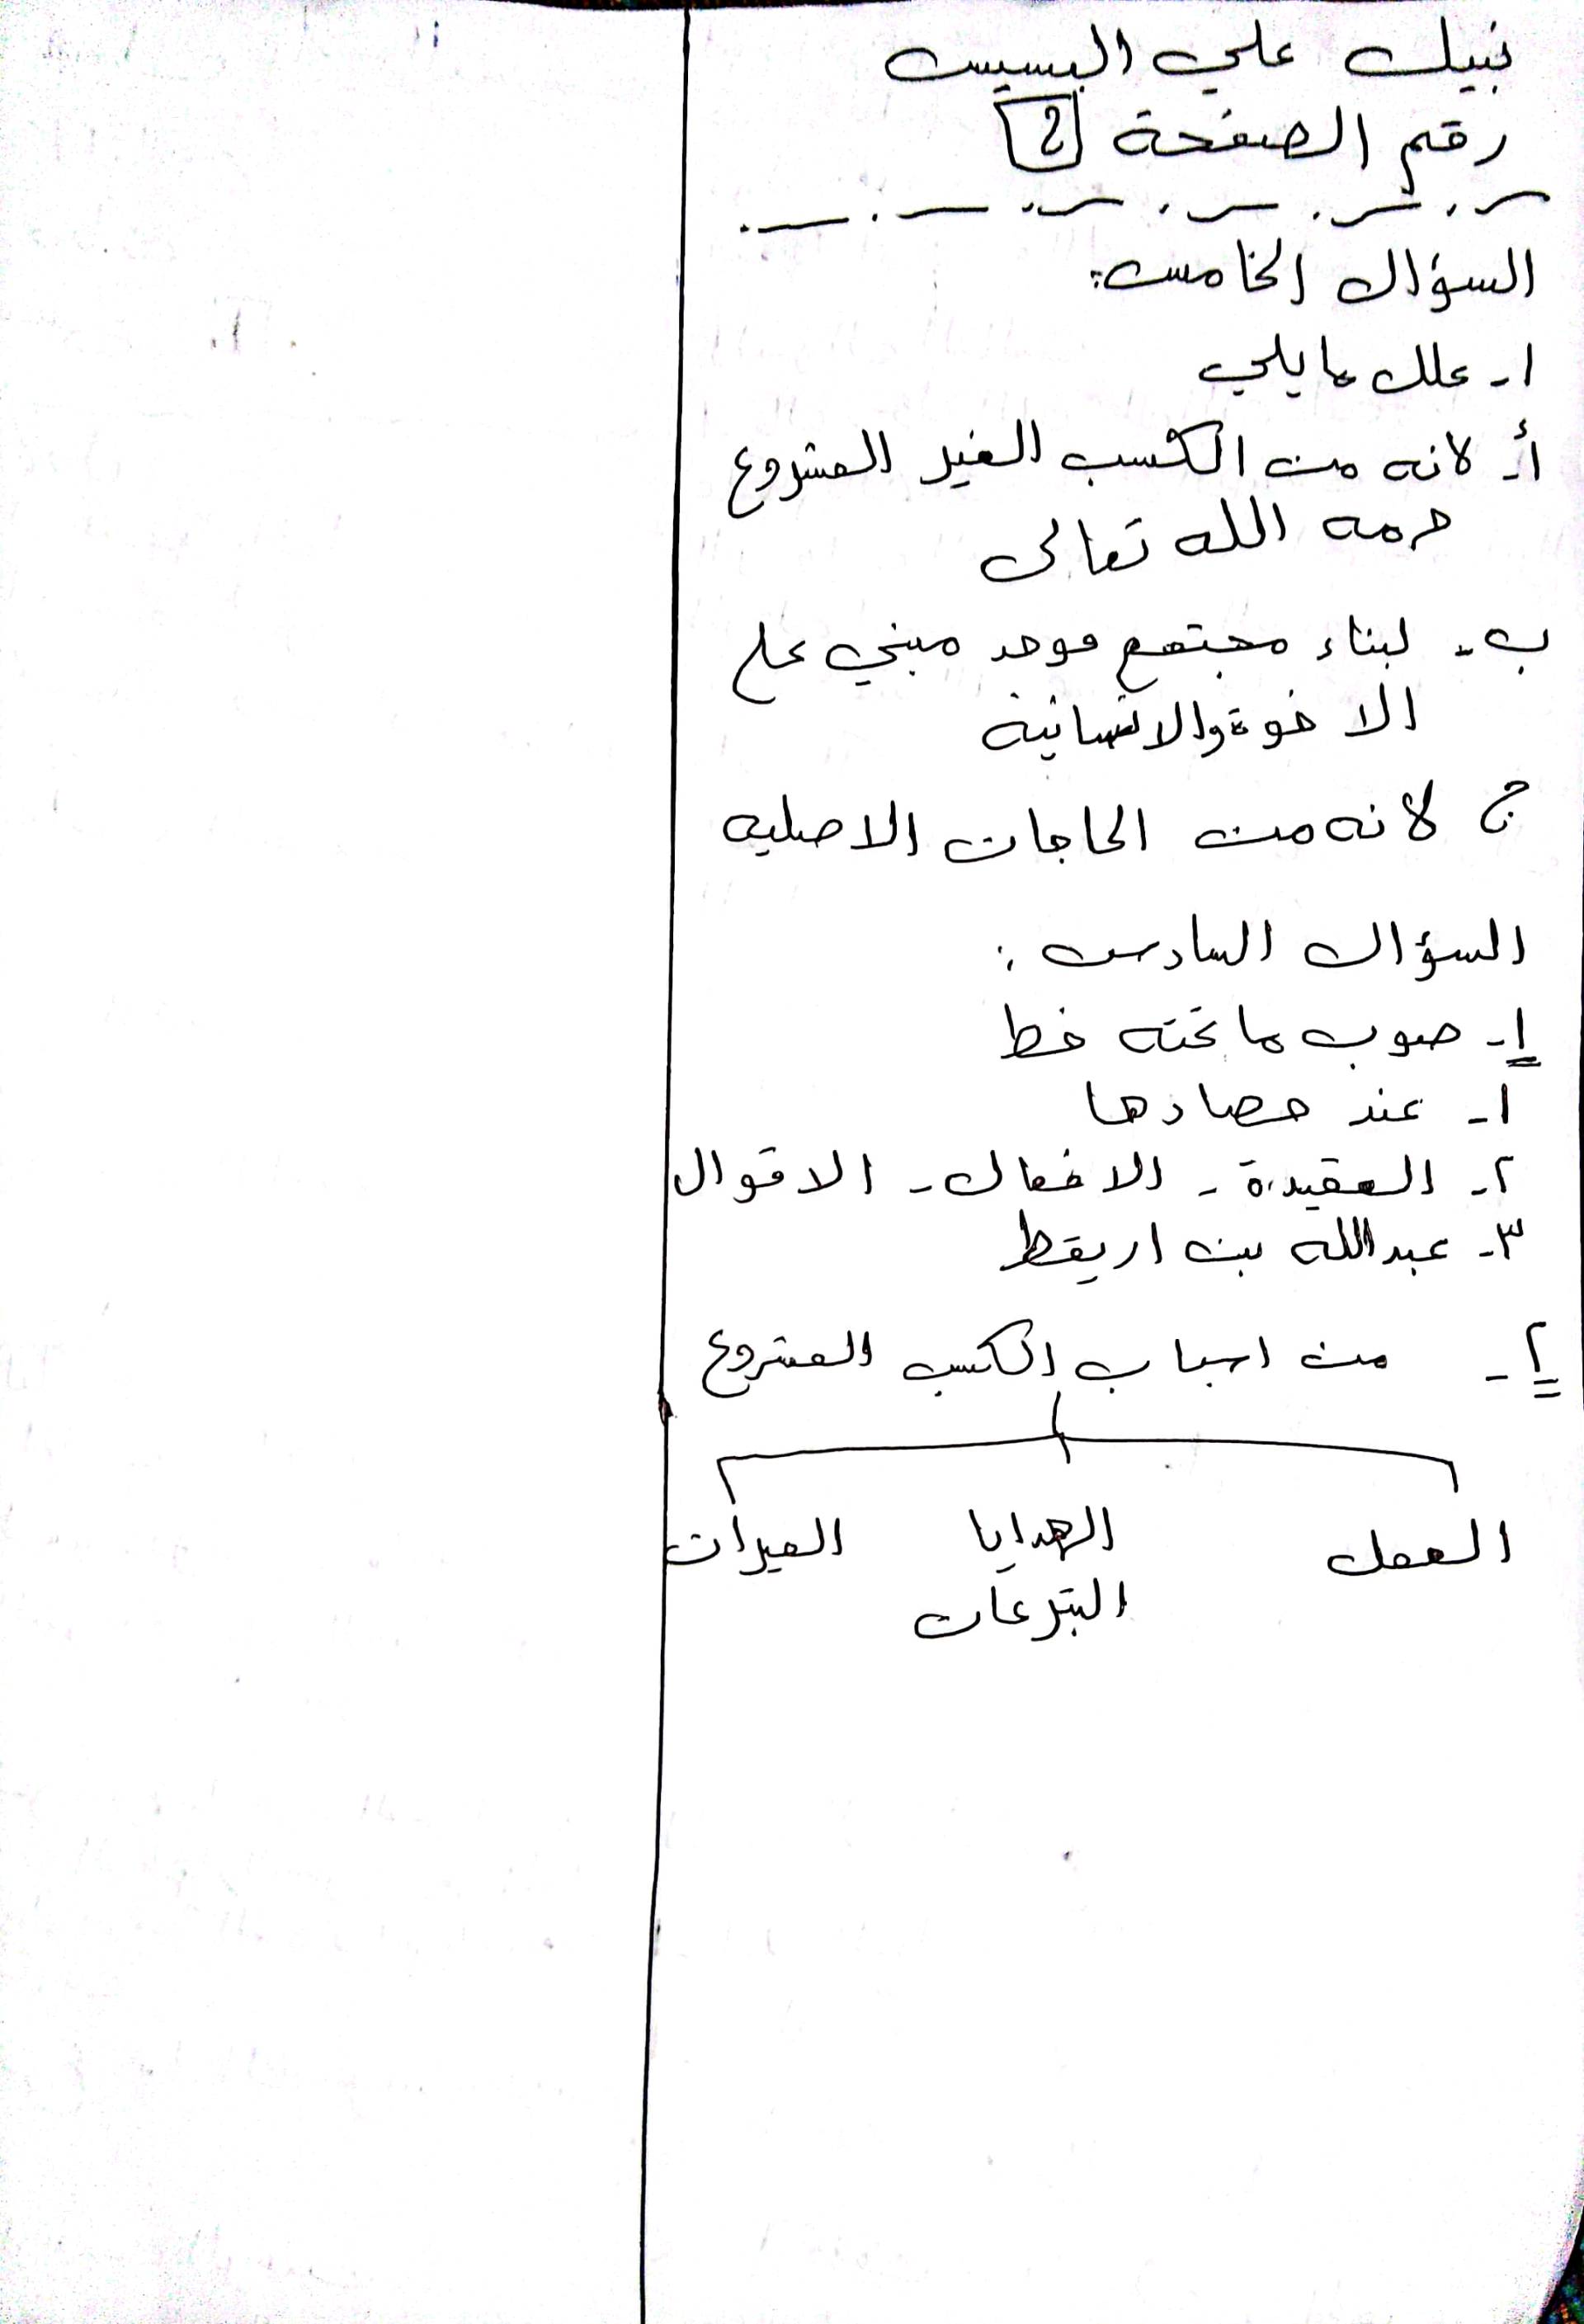 نبيل علي البسيس
رقم الصفحة 2
السؤال الخامس:
١- علل ما يلي
أ- لانه من الكسب الغير المشروع
حرمه الله تعالى
ب- لبناء مجتمع موحد مبني على
الاخوة والانسانية
ج لانه من الحاجات الاصليه
السؤال السادس:
١- صوب ما تحته خط
١- عند حصادها
٢- العقيدة - الافعال - الاقوال
٣- عبدالله بن اريقط
٢- من اسباب الكسب المشروع
العمل الهدايا الميراث
التبرعات